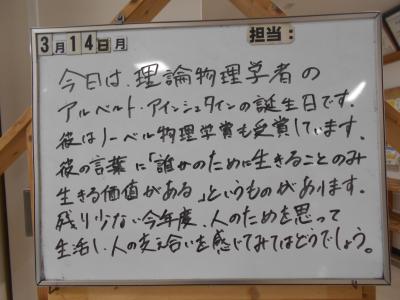 3月14日月 担当:
今日は、理論物理学者の
アルベルト・アインシュタインの誕生日です。
彼はノーベル物理学賞も受賞しています。
彼の言葉に「誰かのために生きることのみ
生きる価値がある」というものがあります。
残り少ない今年度、人のためを思って
生活し、人の支え合いを感じてみてはどうでしょう。